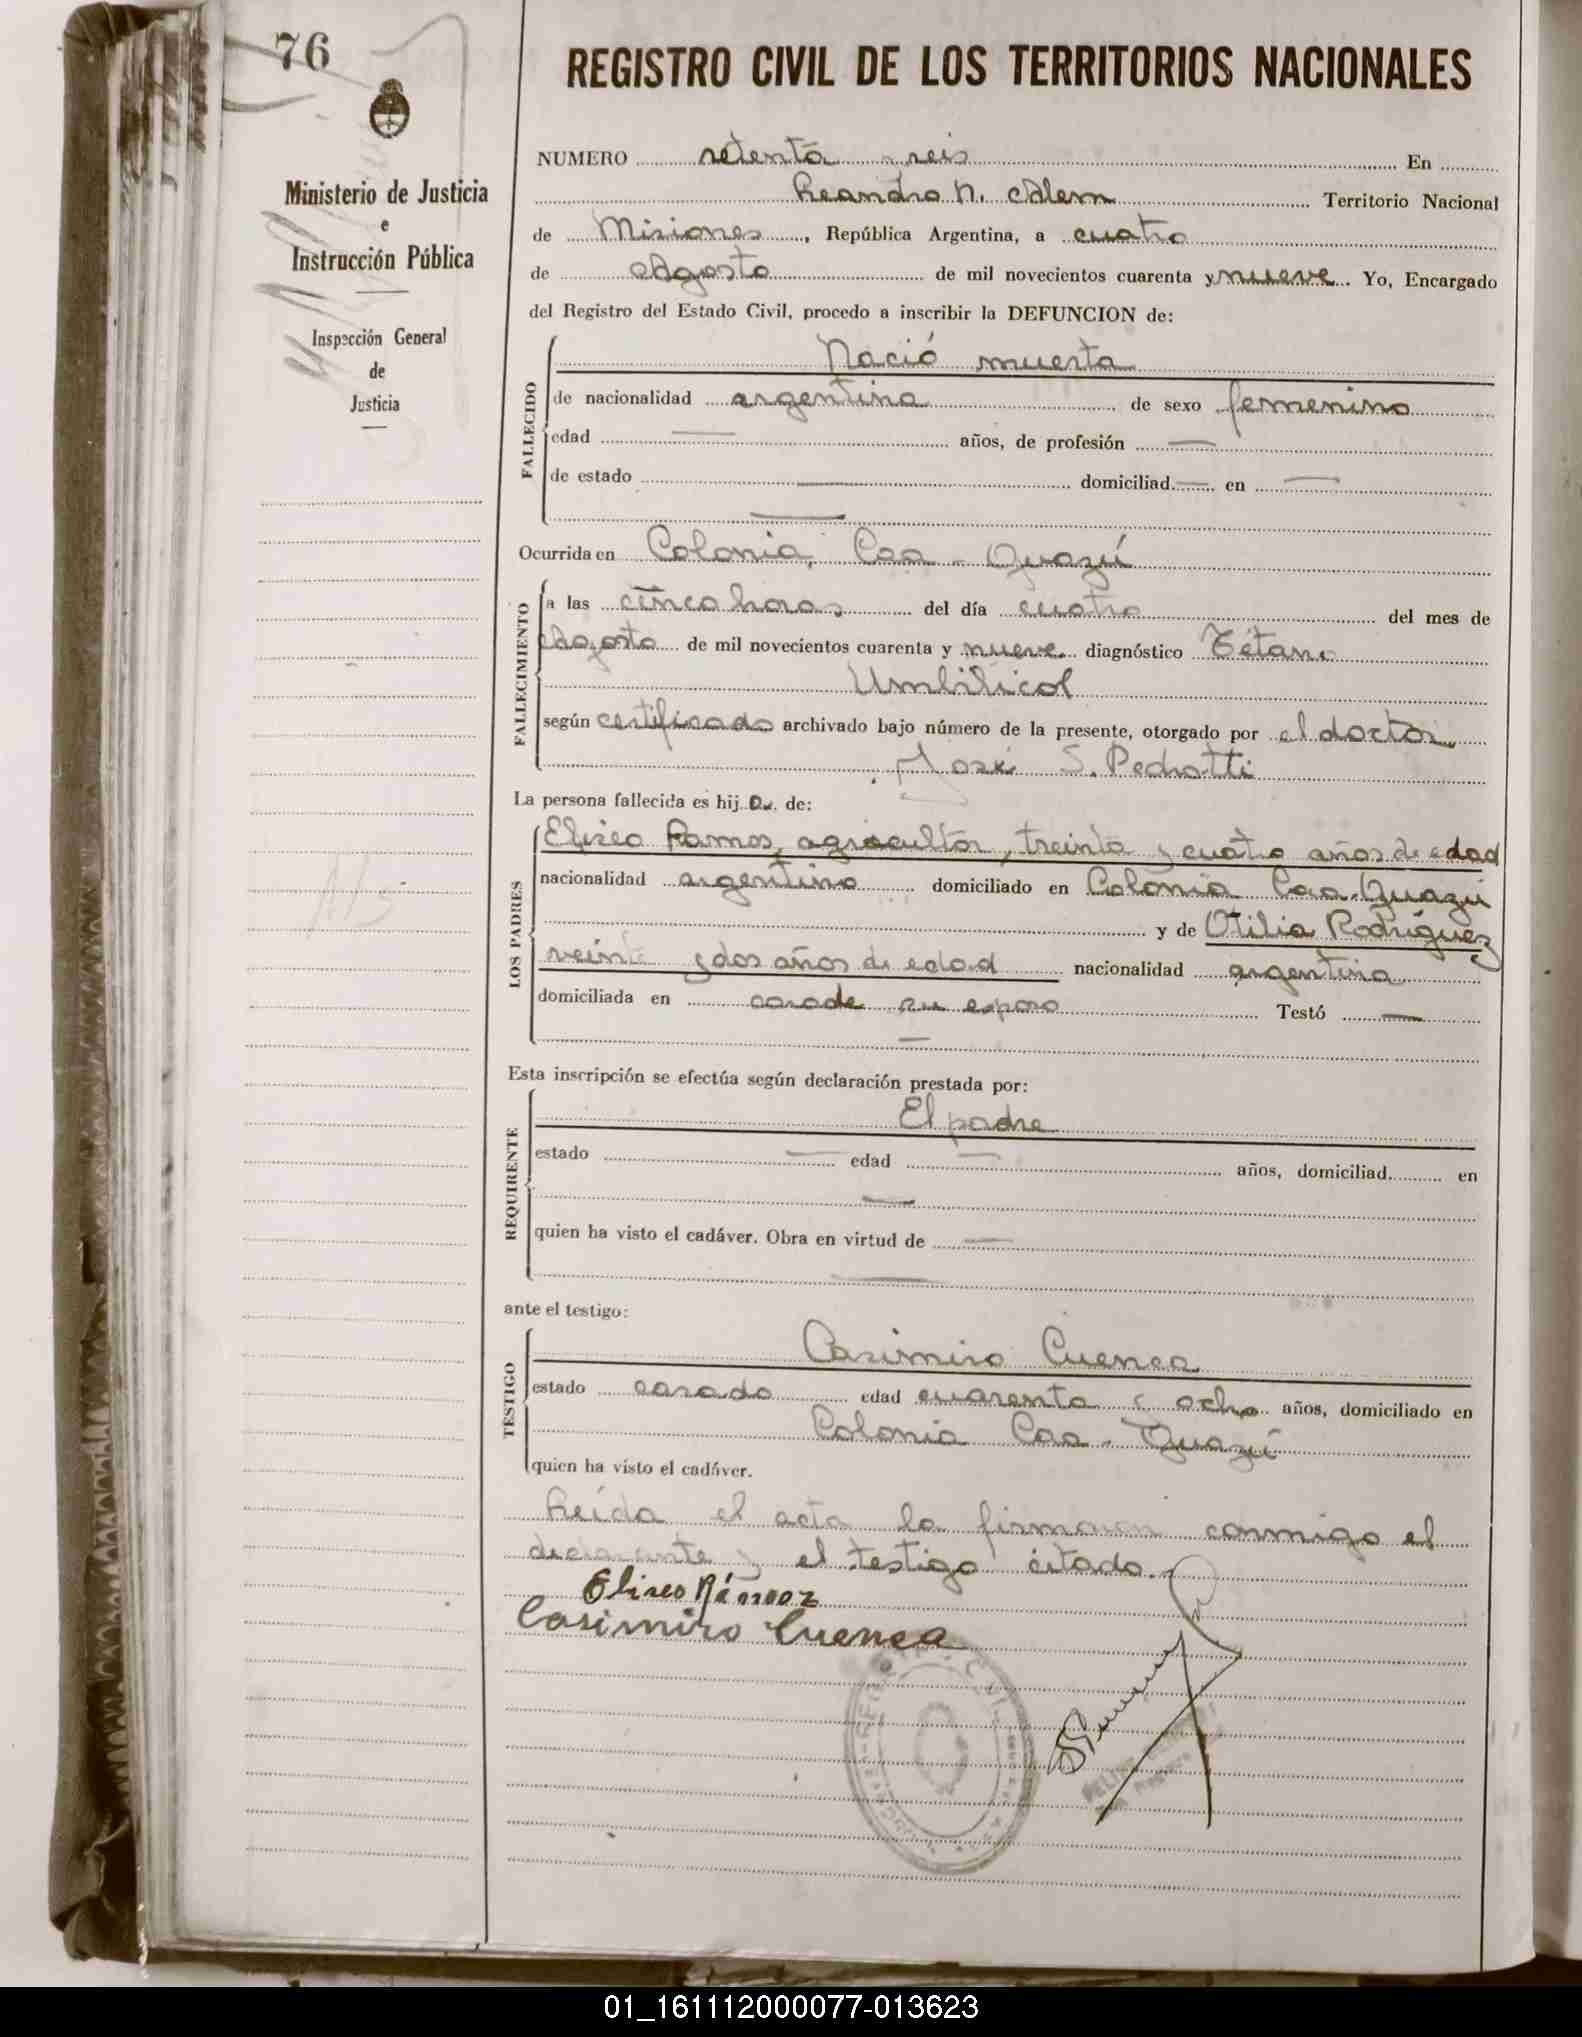 76
REGISTRO CIVIL DE LOS TERRITORIOS NACIONALES
Ministerio de Justicia
e
Instrucción Pública
Inspección General
de
Justicia
NUMERO setenta y seis En
Leandro N. Alem Territorio Nacional
de Misiones, República Argentina, a cuatro
de Agosto de mil novecientos cuarenta y nueve. Yo, Encargado
del Registro del Estado Civil, procedo a inscribir la DEFUNCION de:
FALLECIDO
Nació muerta
de nacionalidad argentina de sexo femenino
edad — años, de profesión —
de estado — domiciliad — en —
—
Ocurrida en Colonia, Caa-Guazú
FALLECIMIENTO
a las cinco horas del día cuatro del mes de
Agosto de mil novecientos cuarenta y nueve diagnóstico Tétano
Umbilical
según certificado archivado bajo número de la presente, otorgado por el doctor
José S. Pedrotti
La persona fallecida es hija de:
LOS PADRES
Eliseo Ramos, agricultor, treinta y cuatro años de edad
nacionalidad argentino domiciliado en Colonia Caa-Guazú
y de Otilia Rodríguez
veinte y dos años de edad nacionalidad argentina
domiciliada en casa de su esposo Testó —
—
Esta inscripción se efectúa según declaración prestada por:
REQUIRENTE
El padre
estado — edad — años, domiciliad en
—
quien ha visto el cadáver. Obra en virtud de —
—
ante el testigo:
TESTIGO
Casimiro Cuenca
estado casado edad cuarenta y ocho años, domiciliado en
Colonia Caa-Guazú
quien ha visto el cadáver.
Leída el acta la firmaron conmigo el
declarante y el testigo citado.
Eliseo Rámoz
Casimiro Cuenca
REGISTRO CIVIL
01_161112000077-013623